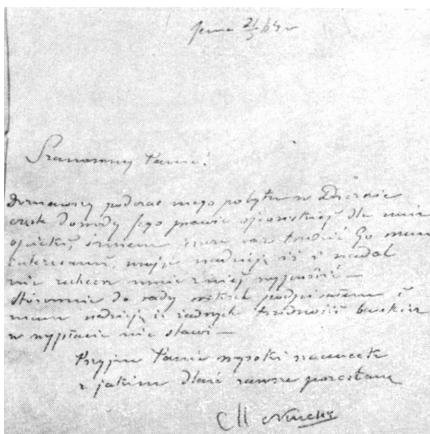 Jena 21/5 64 r
Szanowny Panie!
Doznawszy podczas mego pobytu w
dowody Jego prawie ojcowskiej dla mnie
opieki, śmiem znowu trudzić Go mem
mając nadzieję iż i nadal
nie zechcesz mnie z niej
Stosownie do rady podpisałem i
mam nadzieję iż żadnych trudności bankier
w wypłacie nie stawi —
Przyjm Panie wysoki szacunek
z jakim dlań zawsze pozostaję